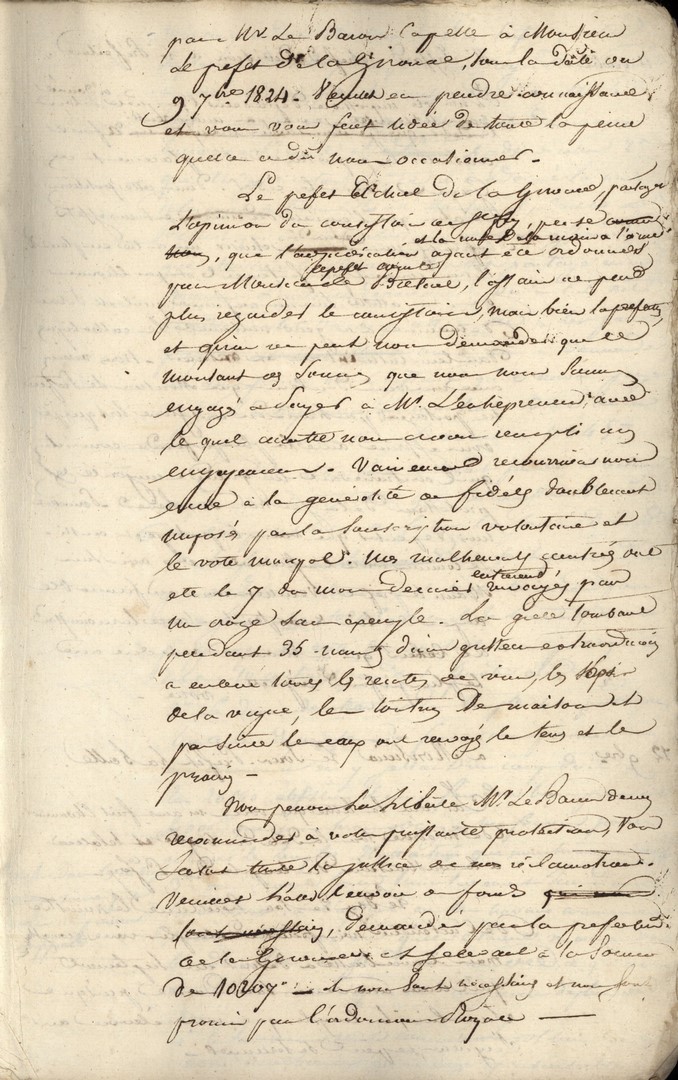 par Mr. Le Baron Capelle à Monsieur
Le prefet de la Gironde, sous la date du
9 7bre 1824. Veuillez en prendre connaissance
et vous vous fait idée de toute la peine
qu'elle a dû nous occasionner.
Le prefet actuel de la Gironde, partage
L'opinion du consistoire de, pense
que l'adjudication et la mise de la main à l'œuvre ayant été ordonnés
par Monsieur le prefet, l'affaire ne peut
plus regarder le consistoire, mais bien la prefecture,
et qu'on ne peut nous demander que le
montant des sommes que nous nous sommes
engagés à payer à Mr. L'entrepreneur, avec
le quel nous avons rempli nos
engagements. Vainement recourrions nous
encore à la générosité de fidèles doublement
imposés par la souscription volontaire et
le vote. Nos malheureuses contrées ont
été le 7 du mois dernier entierement ravagés par
un orage sans exemple. La grele tombant
pendant 35 minutes d'une grosseur extraordinaire
a enlevé toutes les recoltes de vin, les seps
de la vigne, les toitures de maisons et
par suite les eaux ont ravagé les terres et les
prairies.
Nous prenons la liberté Mr. Le Baron de nous
recommander à votre puissante protection, Vous
toute la justice de nos réclamations.
Veuillez l'envoi de fonds
demandés par la prefecture
de la Gironde et s'élevant à la somme
de 10207 et nous sont nécessaires et nous sont
promis par l'ordonnance Royale